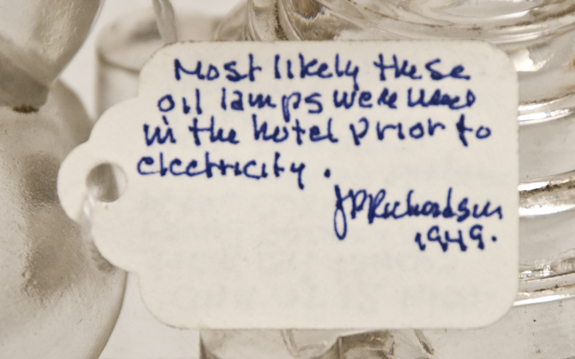 Most likely these
oil lamps were used
in the hotel prior to
electricity.
JPRichardson
1949.